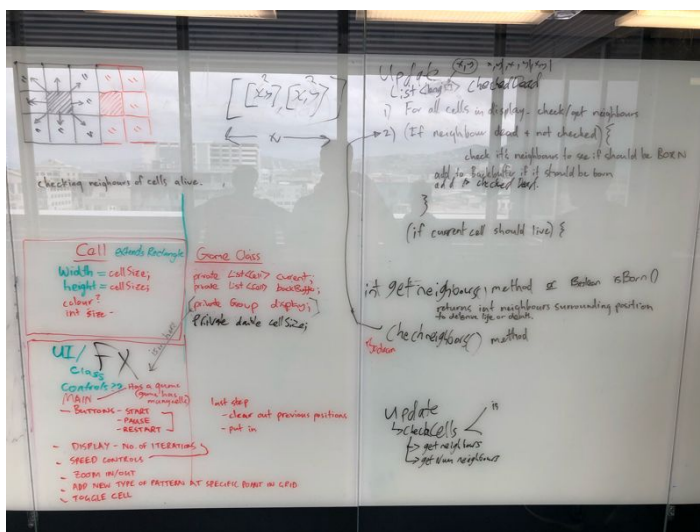 [[x,y],[x,y]]
2 2
N
checking neighours of cells alive.
Cell extends Rectangle
width = cellSize;
height = cellSize;
colour?
int size -
Game Class
private List<Cell> current;
private List<Cell> backBuffer;
(private Group display;)
private double cellSize;
UI/FX
Class
Controls >>
Has a game
MAIN
- BUTTONS - START
- PAUSE
- RESTART
- DISPLAY - NO. OF ITERATIONS
- SPEED CONTROLS
- ZOOM IN/OUT
- ADD NEW TYPE OF PATTERN AT SPECIFIC POINT IN GRID
- TOGGLE CELL
last step
- clear out previous positions
- put in
Update
checkedDead
1) For all cells in display. check/get neighbours
2) (If neighbour dead + not checked) {
check it's neighbours to see if should be BORN
add to backbuffer if it should be born
add to checked Dead.
}
(if current cell should live) {
int getneighbours method Boolean isBorn()
returns int neighbours surrounding position
to determine life or death.
Boolean
Checkneighbours() method
update
checkcells
is
getneighbours
getNum neighbours